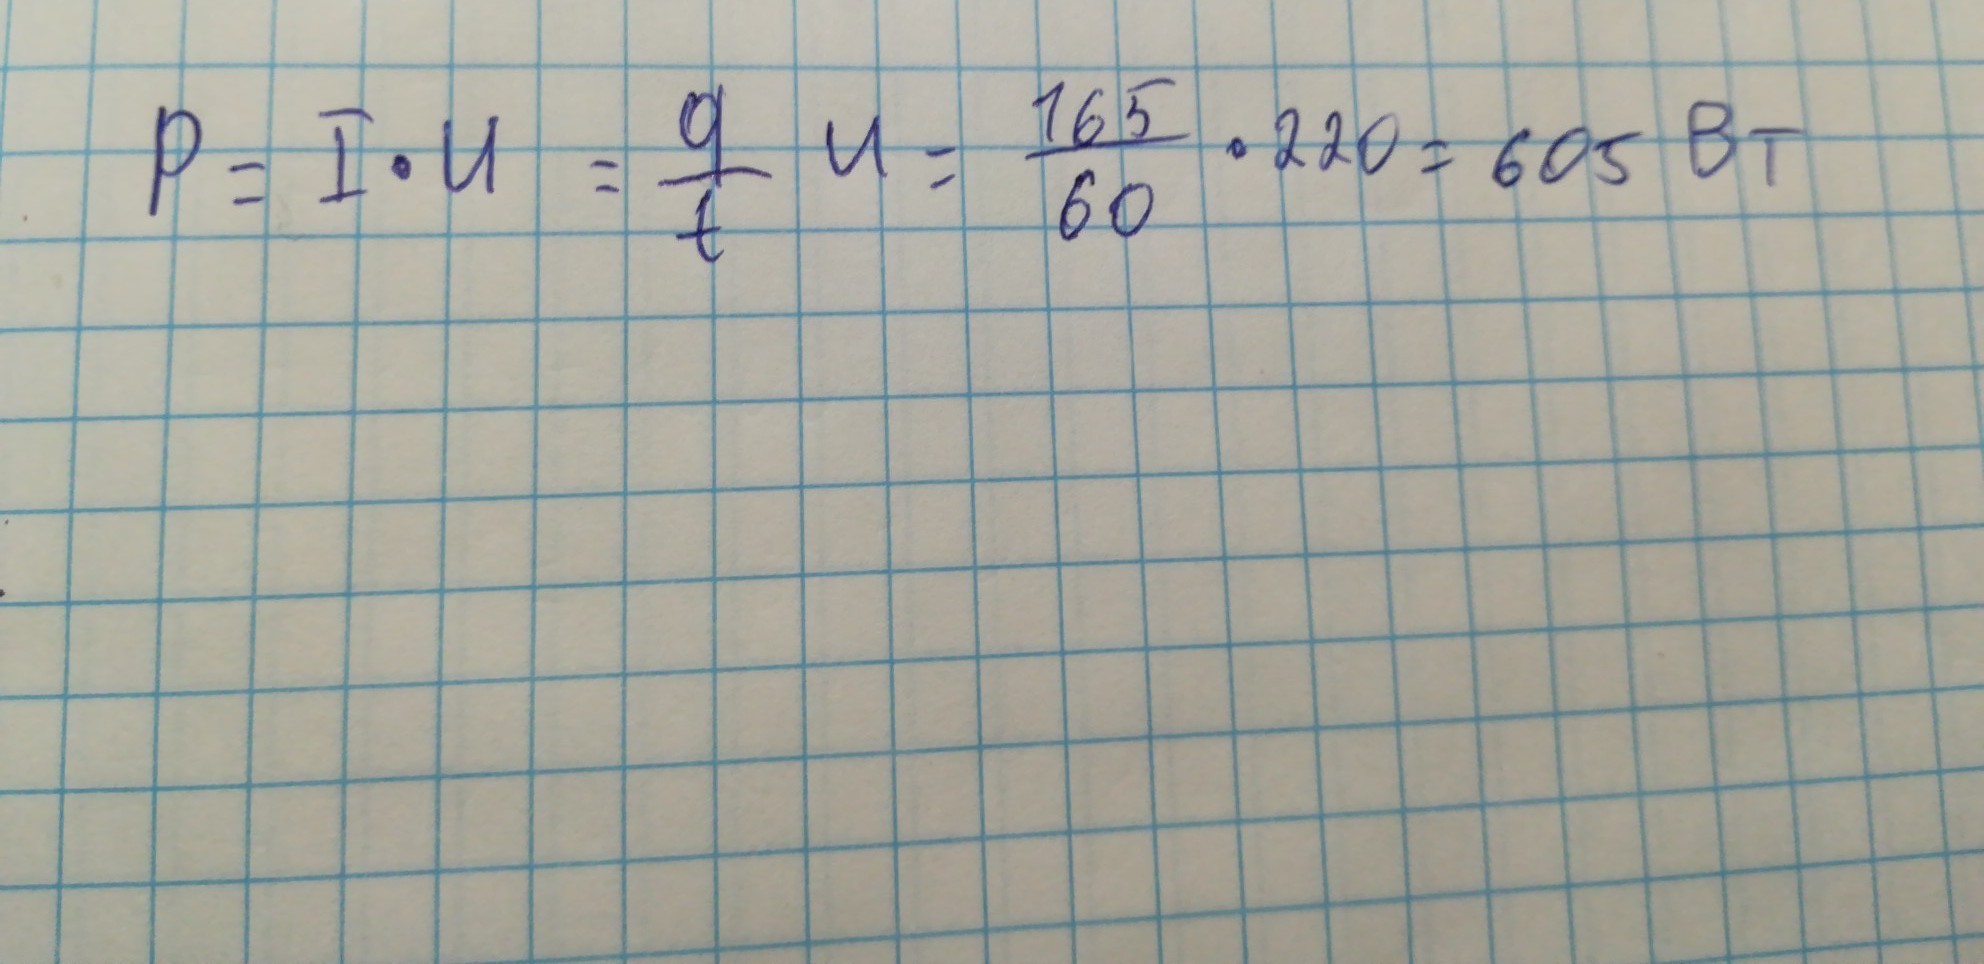 P = I · U = q/t U = 165/60 · 220 = 605 Вт